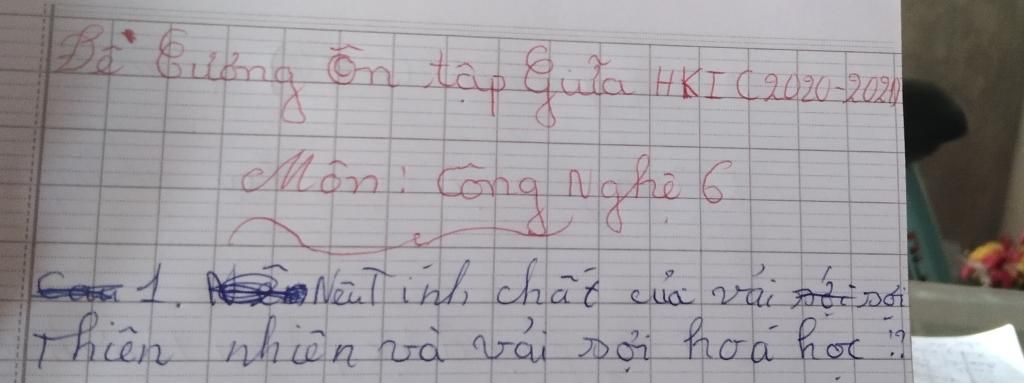 Đề Cương Ôn tập Giữa HKI (2020-2021)
Môn: Công Nghệ 6
1. Nêu Tính chất của vải sợi
Thiên nhiên và vải sợi hoá học ?